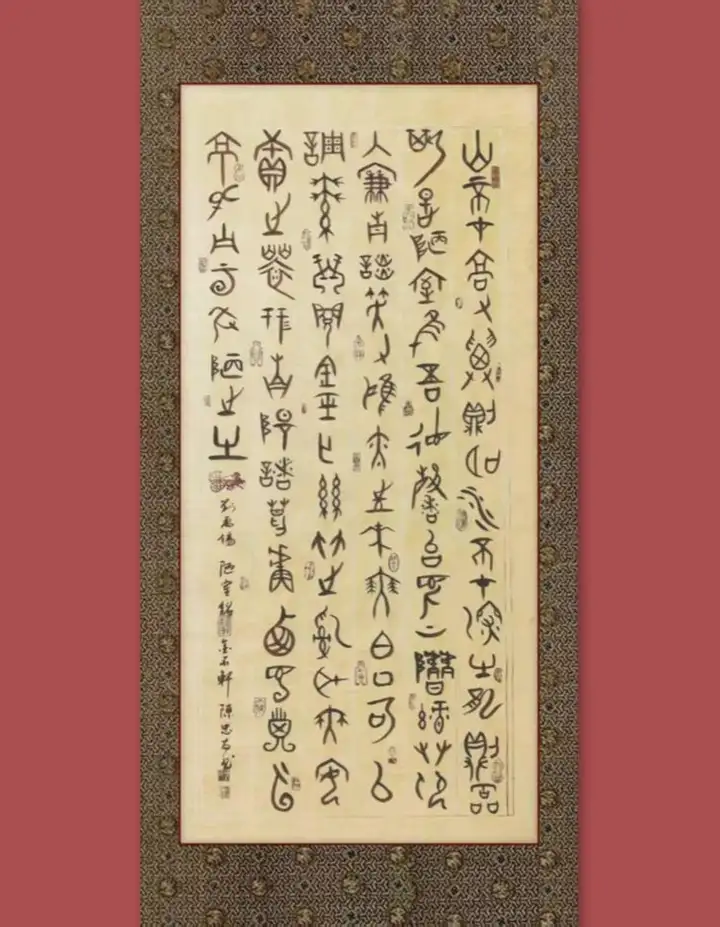 山不在高又仙則名水不在深又龍則靈
斯是陋室隹吾德馨苔痕上階綠艸色
入簾青談笑又鴻儒往來無白丁可以
調素琴閱金巠亡絲竹之亂耳無案
牘之勞形南陽諸葛廬西蜀子雲
亭孔子云何陋之有
劉禹錫 陋室銘 金石軒 陳忠 書